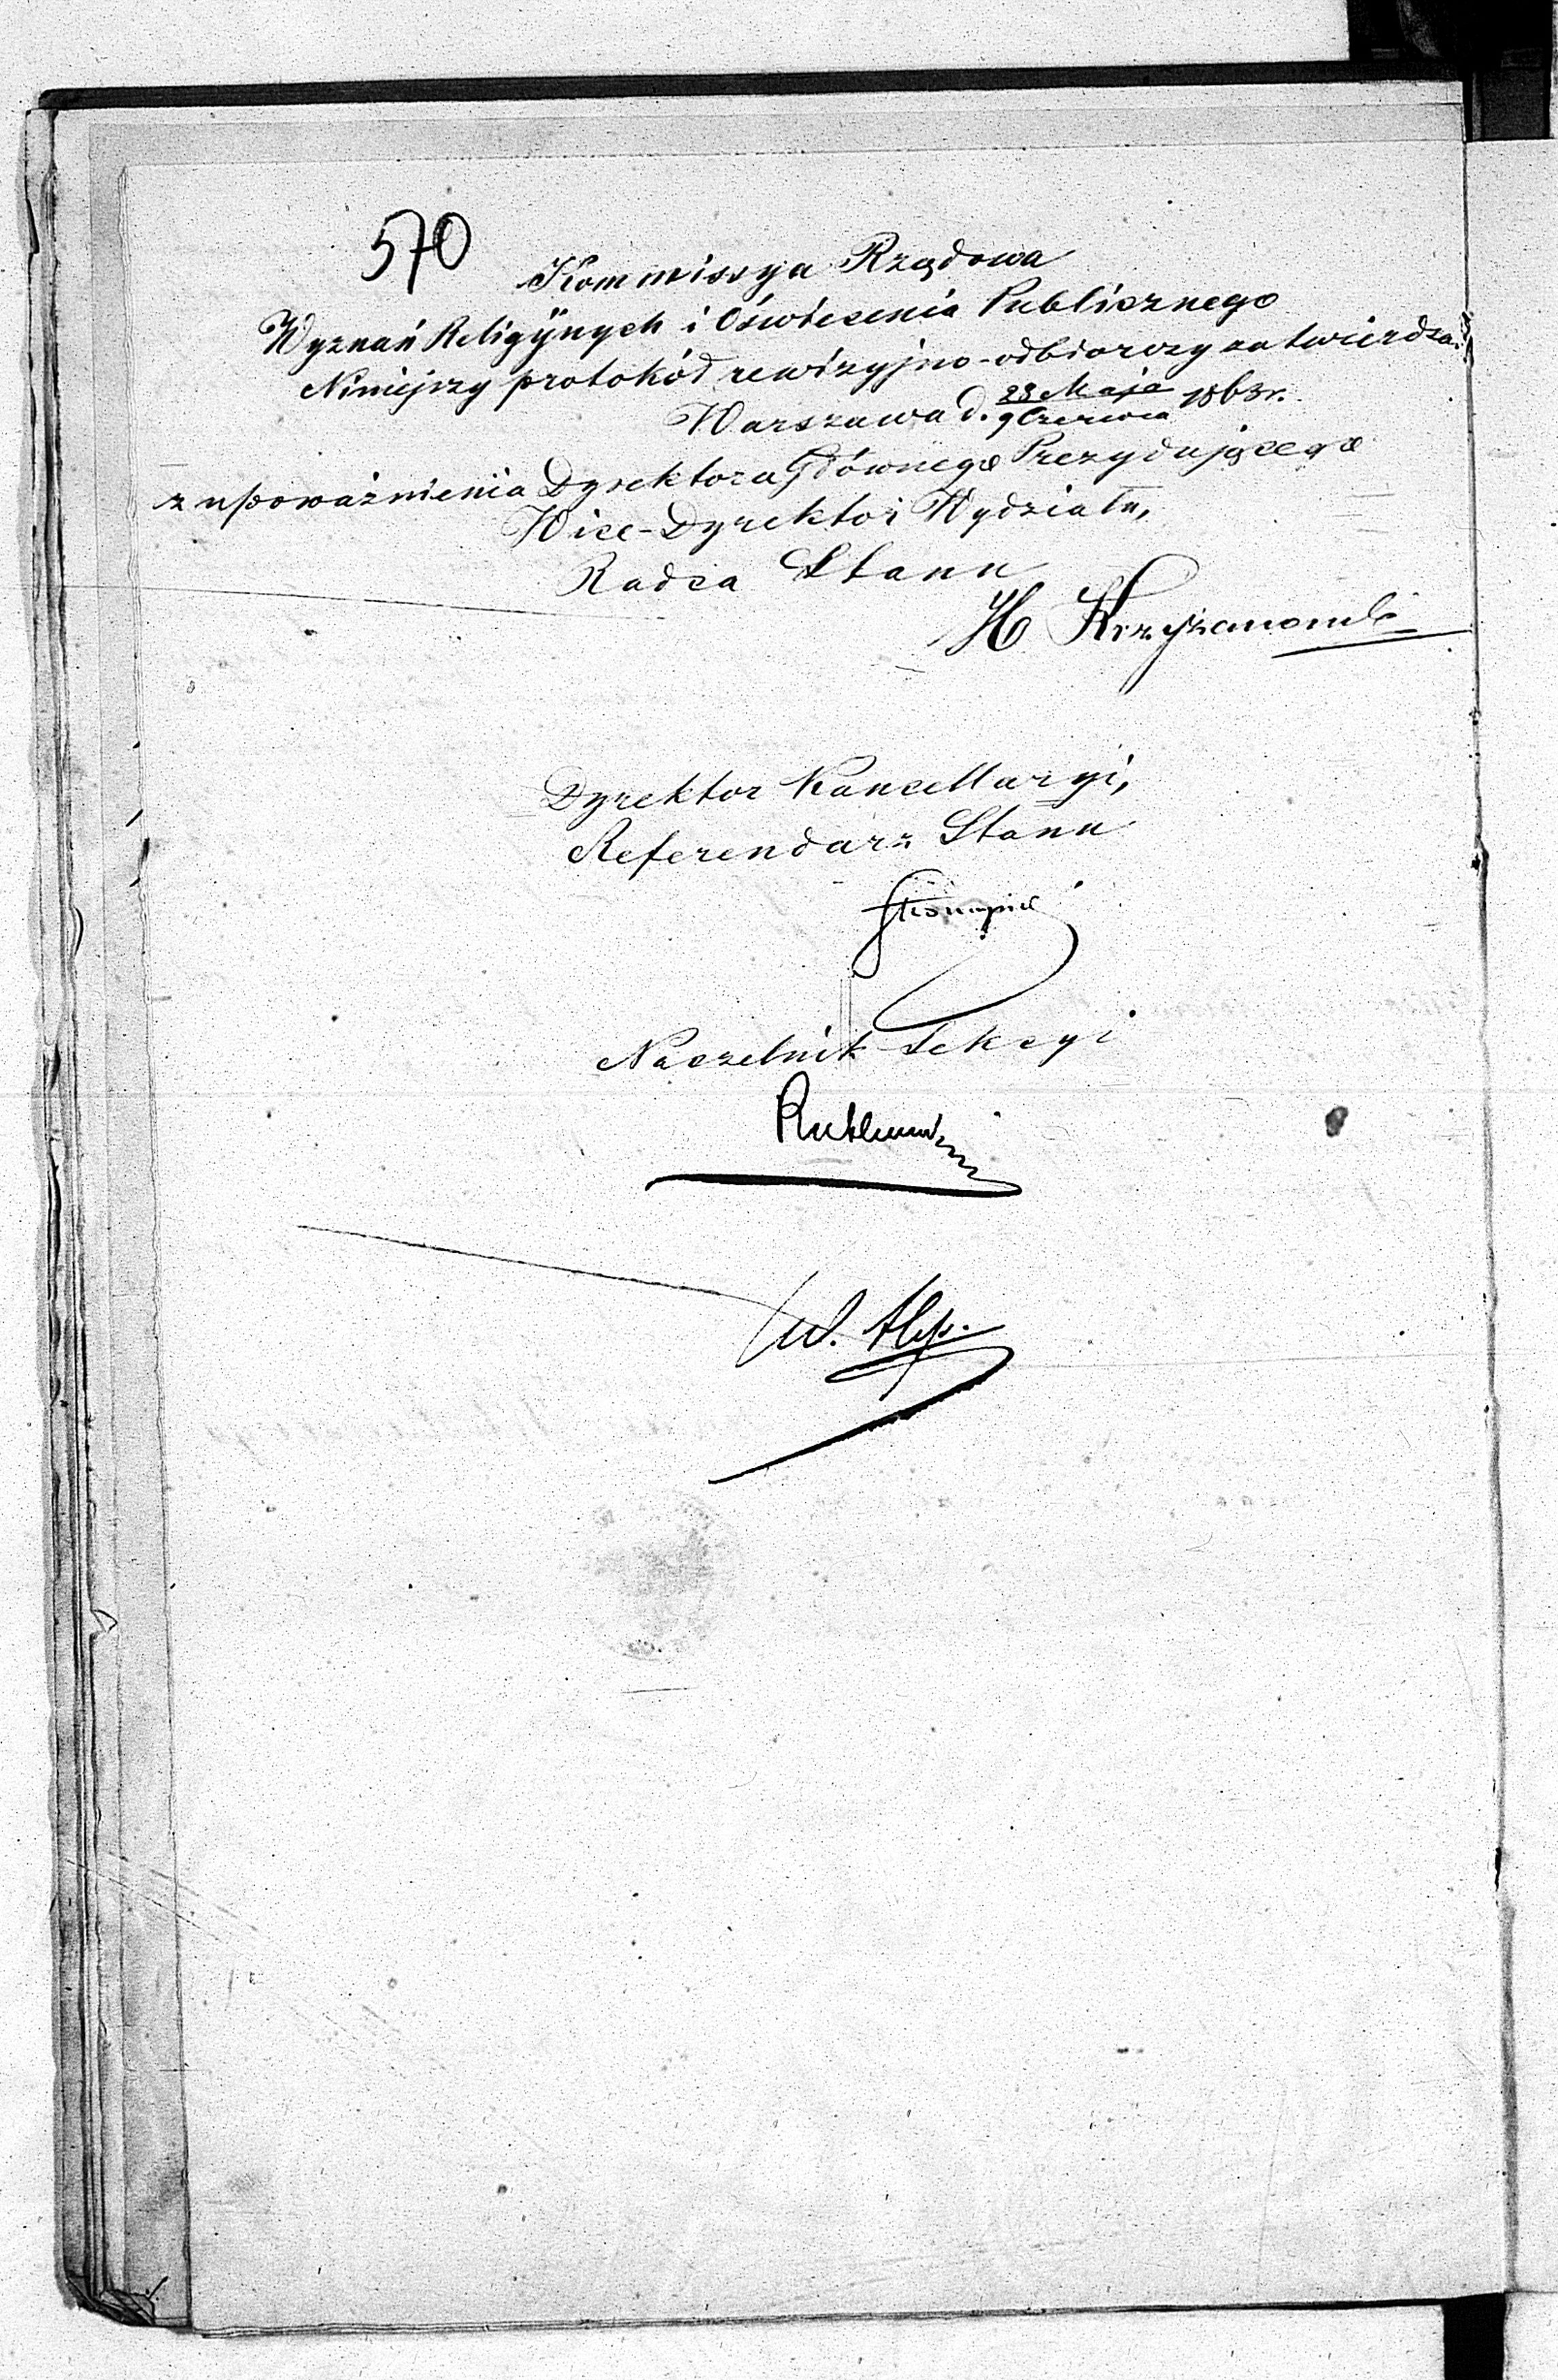 570
Kommissya Rządowa
Wyznań Religijnych i Oświecenia Publicznego
Niniejszy protokół rewizyjno-odbiorczy zatwierdza.
Warszawa d. 28 Maja / 9 Czerwca 1863 r.
z upoważnienia Dyrektora Głównego Prezydującego
Wice-Dyrektor Wydziału,
Radca Stanu
H Krzyżanowski
Dyrektor Kancellaryi,
Referendarz Stanu
Naczelnik Sekcyi